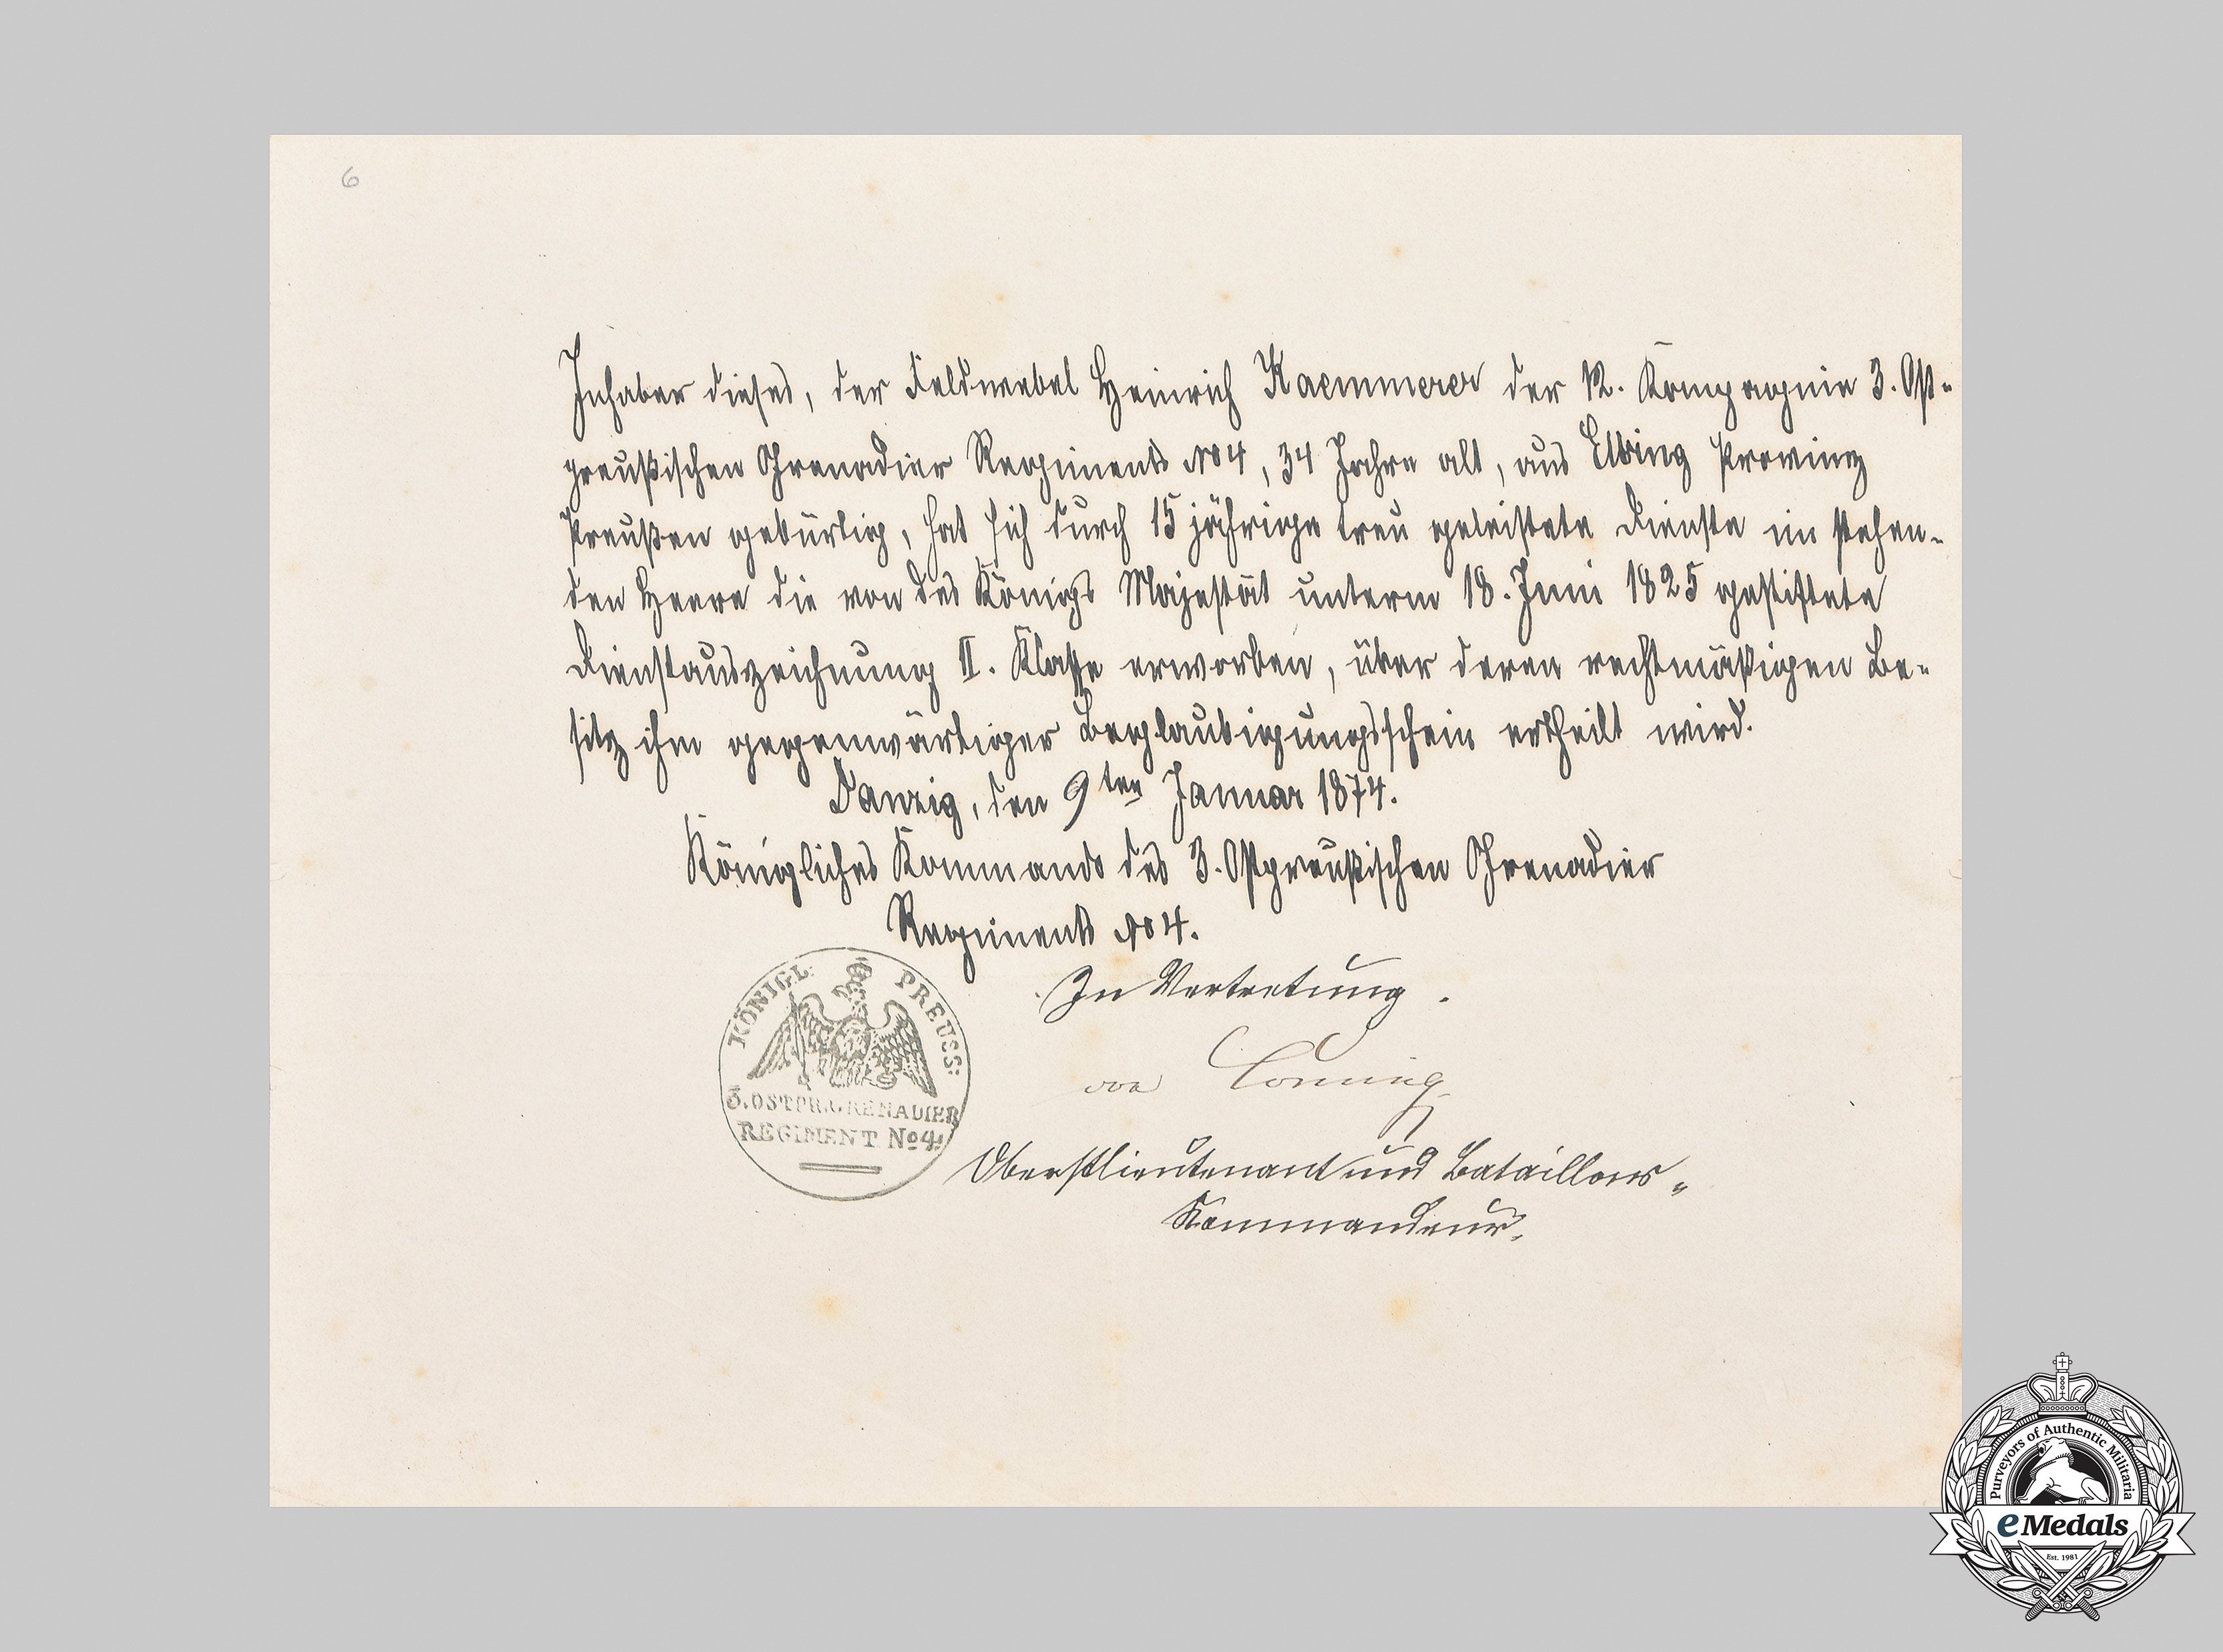 6
Inhaber dieses, der Feldwebel Heinrich Kaemmerer der 12. Kompagnie 3. Ost-
preußischen Grenadier Regiments No 4, 34 Jahre alt, aus Elbing Provinz
Preußen gebürtig, hat sich durch 15 jährige treu geleistete Dienste im stehen-
den Heere die von des Königs Majestät unterm 18. Juni 1825 gestiftete
Dienstauszeichnung II. Klasse erworben, über deren rechtmäßigen Be-
sitz ihm gegenwärtiger Beglaubigungsschein ertheilt wird.
Danzig, den 9ten Januar 1874.
Königliches Kommando des 3. Ostpreußischen Grenadier
Regiments No 4.
In Vertretung.
von
Oberstlieutenant und Bataillons-
Kommandeur.
KÖNIGL: PREUSS:
3. OSTPR. GRENADIER
REGIMENT No 4.
Purveyors of Authentic Militaria
eMedals
Est. 1981